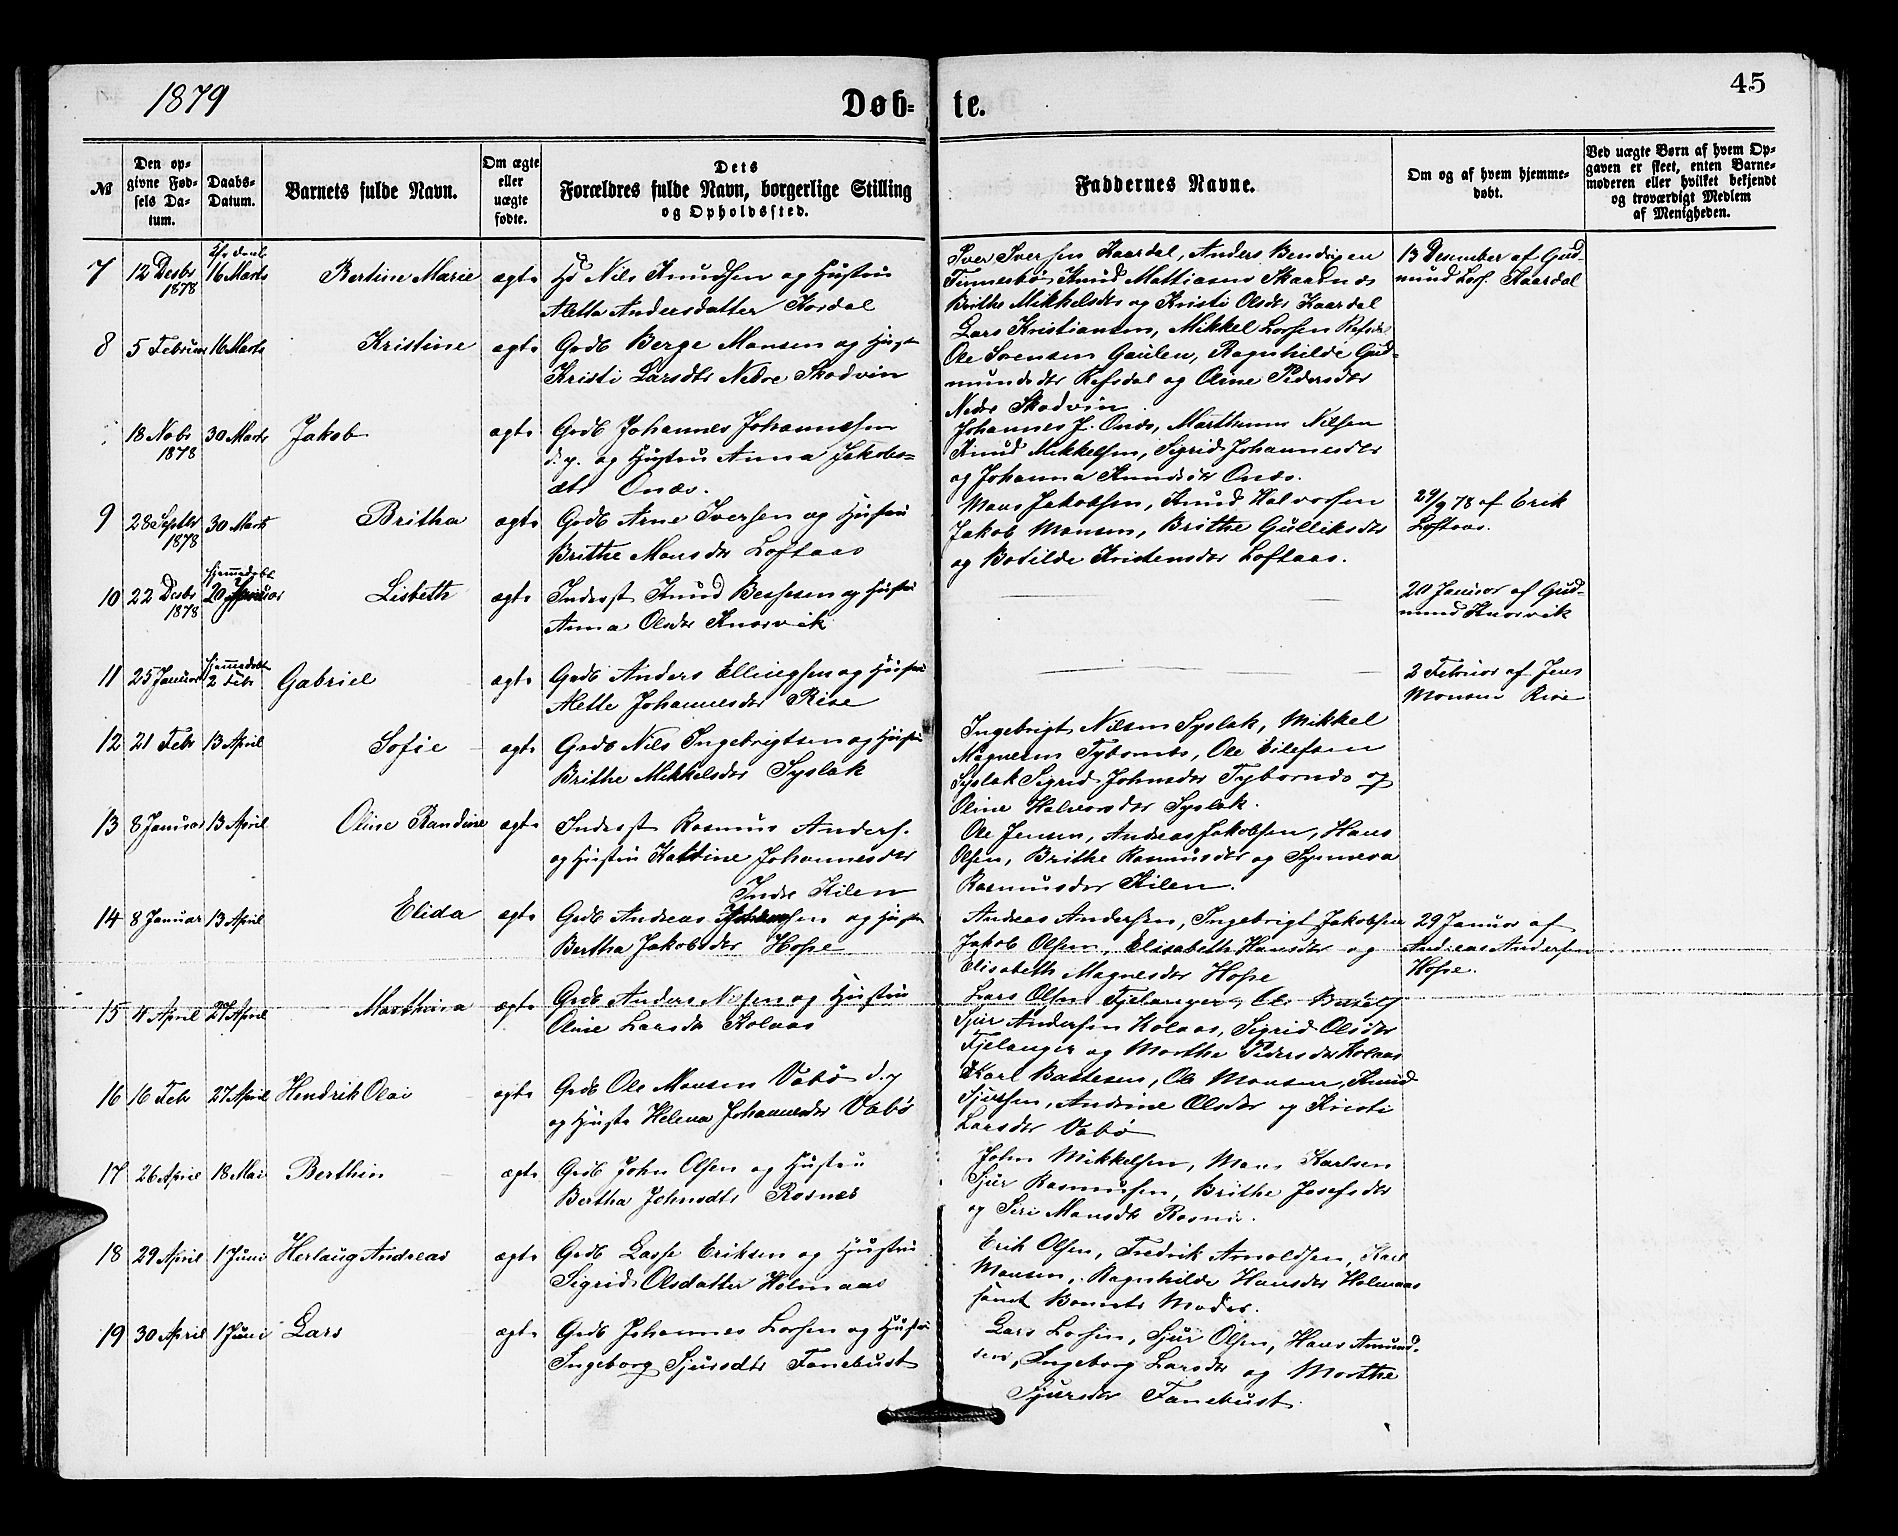 1879
Døb-
te.
45
№
Den op-
givne Fød-
sels Da-
tum.
Daabs-
Datum.
Barnets fulde Navn.
Om ægte
eller
uægte
fødte.
Dets
Forældres fulde Navn, borgerlige Stilling
og Opholdssted.
Faddernes Navne.
Om og af hvem hjemme-
døbt.
Ved uægte Børn af hvem Op-
gaven er skeet, enten Barne-
moderen eller hvilket bekjendt
og troværdigt Medlem
af Menigheden.
7 12 Desbr 16 Marts Bertine Marie ægte Nils Knudsen og Hustru
1878
Aletta Andersdatter Kordal
Iver Iversen Kaardal, Anders Bendixen
Knud Mattiasen
Brithe Mikkelsdtr og Kristi Olsdtr Kaardal
13 Desember af Gud-
mund Lars. Kaardal
8 5 Februar 16 Marts Kristine ægte Grdb Berge Monsen og Hust
Kristi Larsdtr Nedre Skodvin
Lars Kristiansen, Mikkel Larsen Refsdal
Ole Svensen Gaulen, Ragnhilde Gud-
mundsdtr Refsdal og Oline Pedersdtr
Nedre Skodvin
18 Nobr 30 Marts Jakob ægte Grdb Johannes Johannesen
1878
d. y. og Hustru Anna Jakobs-
dtr Onæs.
Johannes J. Onæs, Marthinus Nilsen
Knud Mikkelsen, Sigrid Johannesdtr
og Johanna Knudsdtr Onæs.
9 28 Septbr 30 Marts Britha ægte Grdb Arne Iversen og Hustru
1878
Brithe Monsdtr Loftaas
Mons Jakobsen, Knud Halvorsen
Jakob Monsen, Brithe Gulliksdtr
og Botilde Kristensdtr Loftaas.
29/9 78 af Erik
Loftaas.
hjemmedøbt
10 22 Desbr 20 Januar Lisbeth ægte Inderst Knud Bessesen og Hustru
1878
Anna Olsdtr Knarvik
20 Januar af Gud-
mund Knarvik
hjemmedøbt
11 25 Januar 2 Febr Gabriel ægte Grdb Anders Ellingsen og Hustru
Alette Johannesdtr Rise
2 Februar af Jens
Monsen Rise
12 21 Febr 13 April Sofie ægte Grdb Nils Ingebrigtsen og Hustru
Brithe Mikkelsdtr Syslak
Ingebrigt Nilsen Syslak, Mikkel
Magnesen Ole Eilefsen
Syslak Sigrid Johnsdtr og
Oline Halvorsdtr Syslak.
13 8 Januar 13 April Oline Randine ægte Inderst Rasmus Anders.
og Hustru Kattine Johannesdtr
Indre Kilen
Ole Jensen, Andreas Jakobsen, Hans
Olsen, Brithe Rasmusdtr og Synneva
Rasmusdtr Kilen.
14 8 Januar 13 April Elida ægte Grdb Andreas og Hustru
Bertha Jakobsdtr Hope
Andreas Andersen, Ingebrigt Jakobsen
Jakob Olsen, Elisabeth Hansdtr og
Elisabeth Magnesdtr Hope
29 Januar af
Andreas Andersen
Hope.
15 4 April 27 April Marthina ægte Grdb Anders Nilsen og Hustru
Oline Larsdtr Kolaas
Lars Olsen Fjelanger, Ole
Sjur Andersen Kolaas, Sigrid Olsdtr
Fjelanger og Marthe Pedersdtr Kolaas
16 16 Febr 27 April Hendrik Olai ægte Grdb Ole Monsen Vabø d. y
og Hustr Helena Johannesdtr Vabø
Karl Bastesen, Ole Monsen, Knud
Sjursen, Andrine Olsdtr og Kristi
Larsdtr Vabø
17 26 April 18 Mai Berthin ægte Grdb John Olsen og Hustru
Bertha Johnsdtr Rosnes
John Mikkelsen, Mons Karlsen
Sjur Rasmussen, Brithe Josefsdtr
og Siri Monsdtr Rosnes.
18 29 April 1 Juni Herlaug Andreas ægte Grdb Lasse Eriksen og Hustru
Sigrid Olsdatter Holmaas
Erik Olsen, Fredrik Arnoldsen, Karl
Monsen, Ragnhilde Hansdtr Holmaas
samt Barnets Moder.
19 30 April 1 Juni Lars ægte Grdb Johannes Larsen og Hustru
Ingeborg Sjursdtr Fanebust
Lars Larsen, Sjur Olsen, Hans Amund-
sen, Ingeborg Larsdtr og Marthe
Sjursdtr Fanebust.